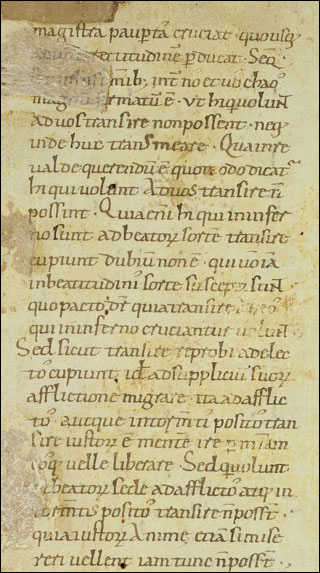 magistra paup̄tas cruciat · quousq;
rectitudinē p̄ducat · Seq̄
m̄ib; int̄ nos et uos chaos
magnū firmatū ē · Vt hi qui uolunt
ad uos transire non possent · neq;
inde huc transmeare · Qua in re
ualde querendū ē quomodo dicat̄
hi qui uolunt Ad uos transire n̄
possint · Quia eni hi qui in infer
no sunt ad beatorꝝ sortē transire
cupiunt dubiū non ē · qui uo iā
in beatitudinis sorte suscepti sun̄
quo pacto dr̄ quia transire
qui in inferno cruciantur uolun̄
Sed sicut transire reprobi ad elec
tos cupiunt, id ē a suppliciorū suorꝝ
afflictione migrare · ita ad afflic
tos atque in tormtis positos tran
sire iustorꝝ ē mente ire p
eosq; uelle liberare · Sed qui uolunt
beatorꝝ sede ad afflictos atq; in
tormtis positos transire n̄ poss̄t ·
quia iustorꝝ Anime, etiā si
uellent iam tunc n̄ poss̄t ·